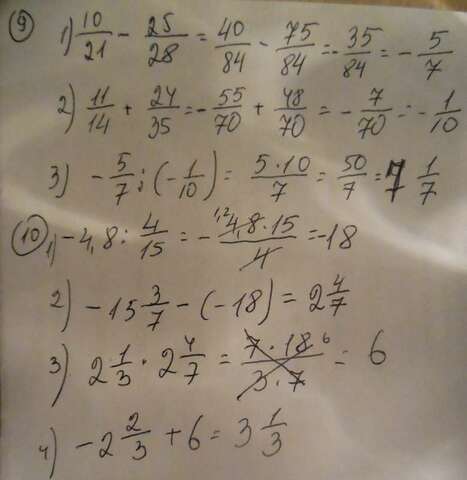 ⑨ 1) 10/21 - 25/28 = 40/84 - 75/84 = -35/84 = -5/7
2) 11/14 + 24/35 = -55/70 + 48/70 = -7/70 = -1/10
3) -5/7 : (-1/10) = 5·10/7 = 50/7 = 7 1/7
⑩ 1) -4,8 : 4/15 = - 1,2 4,8·15/4 = -18
2) -15 3/7 - (-18) = 2 4/7
3) 2 1/3 · 2 4/7 = 7·18 6/3·7 = 6
4) -2 2/3 + 6 = 3 1/3